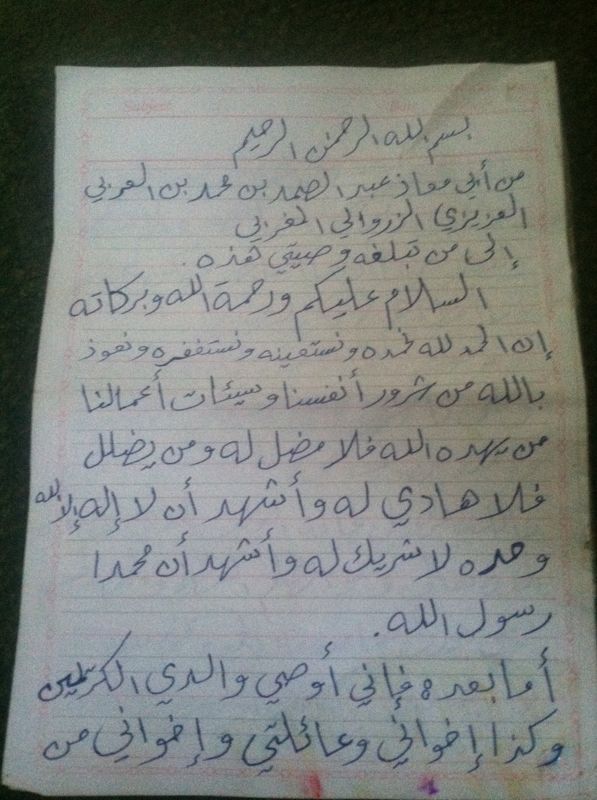 Subject
بسم الله الرحمن الرحيم
من أبي معاذ عبد الصمد بن محمد بن العربي
العزيزي الزروالي المغربي
إلى من تبلغه وصيتي هذه.
السلام عليكم ورحمة الله وبركاته
إن الحمد لله نحمده ونستعينه ونستغفره ونعوذ
بالله من شرور أنفسنا وسيئات أعمالنا
من يهده الله فلا مضل له ومن يضلل
فلا هادي له وأشهد أن لا إله إلا الله
وحده لا شريك له وأشهد أن محمدا
رسول الله.
أما بعد ه فإني أوصي والدي الكريمين
وكذا إخواني وعائلتي وإخواني من